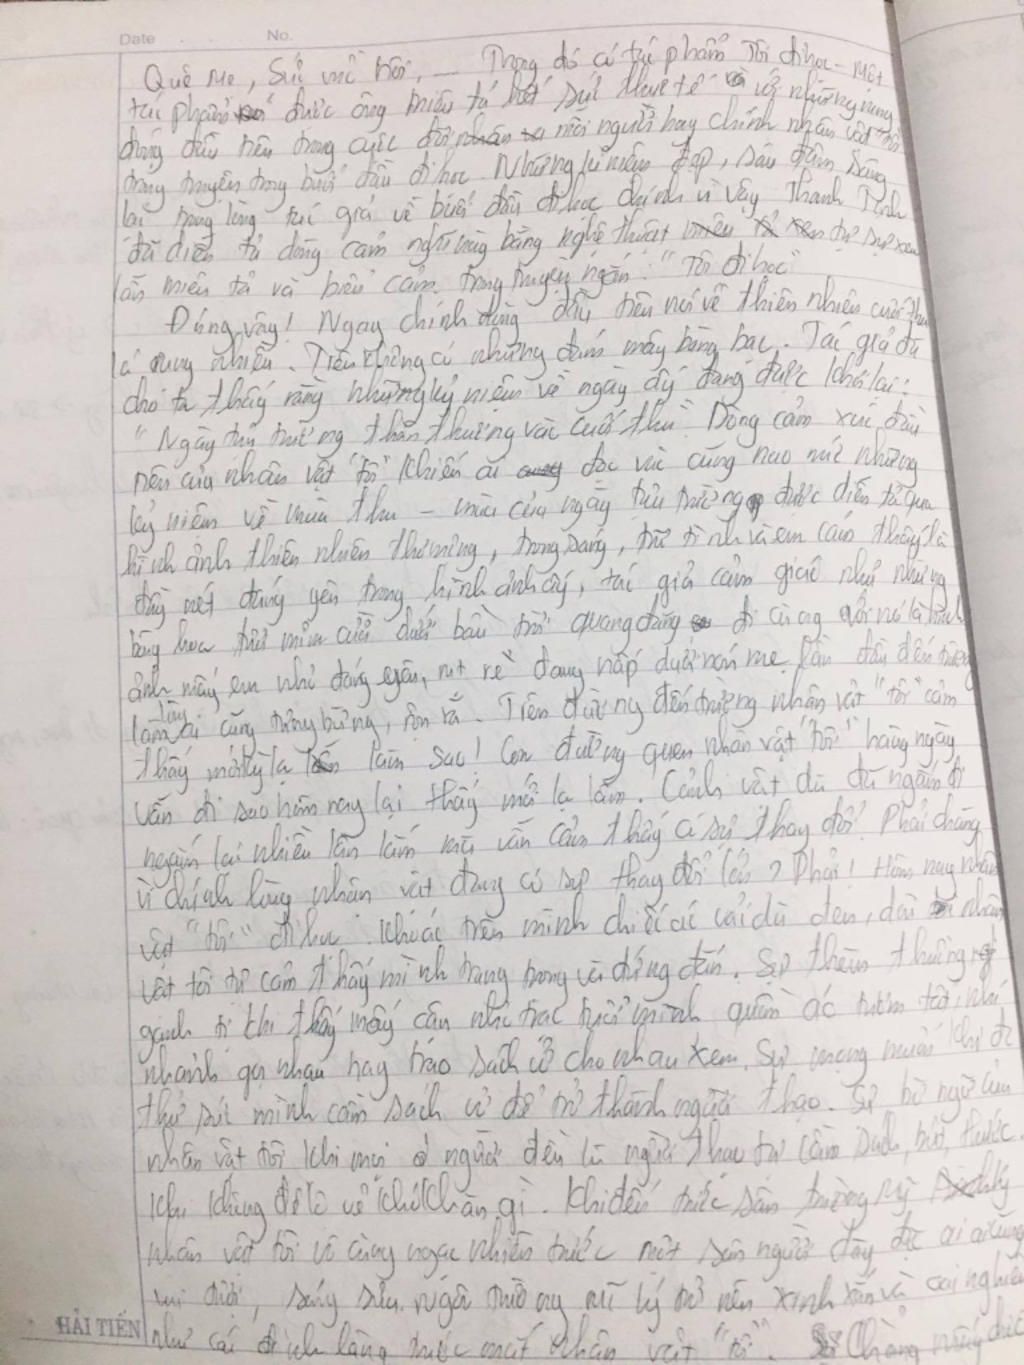 Date No.
Quê mẹ, Sức mồ hôi, — Trong đó có tác phẩm Tôi đi học - Một
tác phẩm được ông miêu tả hết sức thực tế với những rung
động đầu tiên trong cuộc đời mỗi người hay chính nhân vật "tôi"
trong truyện trong buổi đầu đi học. Những kỉ niệm đẹp, sâu đậm
lại trong lòng tác giả về buổi đầu đi học chính vì vậy Thanh Tịnh
đã diễn tả dòng cảm nghĩ bằng nghệ thuật tự sự xen
lẫn miêu tả và biểu cảm trong truyện ngắn: "Tôi đi học"
Đúng vậy! Ngay chính dòng đầu tiên nói về thiên nhiên cuối thu
lá rụng nhiều. Trên không có những đám mây bàng bạc. Tác giả đã
cho ta thấy rằng những kỷ niệm về ngày ấy đang được khơi lại:
"Ngày tựu trường thân thương vào cuối thu" Dòng cảm xúc đầu
tiên của nhân vật "tôi" khiến ai đọc vào cũng nao nức những
kỷ niệm về mùa thu - mùa của ngày tựu trường được diễn tả qua
hình ảnh thiên nhiên thơ mộng, trong sáng, trữ tình và em cảm thấy là
đầy nét đáng yêu trong hình ảnh ấy, tác giả cảm giác như những
bông hoa tươi mỉm cười dưới bầu trời quang đãng đi cùng với nó là hình
ảnh mấy em nhỏ đáng yêu, rụt rè đang nấp dưới nón mẹ lần đầu đến trường
làm lòng ai cũng tưng bừng, rộn rã. Trên đường đến trường nhân vật "tôi" cảm
thấy mới lạ làm sao! Con đường quen nhân vật "tôi" hàng ngày
vẫn đi sao hôm nay lại thấy mới lạ lắm. Cảnh vật dù đã ngắm đi
ngắm lại nhiều lần lắm mà vẫn cảm thấy có sự thay đổi. Phải chăng
vì chính lòng nhân vật đang có sự thay đổi lớn? Phải! Hôm nay nhân
vật "tôi" đi học. Khoác trên mình chiếc áo vải dù đen, dài nhân
vật tôi tự cảm thấy mình trang trọng và đứng đắn. Sự thèm thuồng
ganh tị khi thấy mấy cậu nhỏ trạc tuổi mình quần áo tươm tất, nhí
nhảnh gọi nhau hay trao sách vở cho nhau xem. Sự mong muốn khi đi
thử sức mình cầm sách vở để trở thành người thạo. Sự bỡ ngỡ của
nhân vật tôi khi mọi người đều là người thạo tự cầm sách, bút, thước
khi không để lộ vẻ khó khăn gì. Khi đến trước sân trường Mỹ Lý
nhân vật tôi vô cùng ngạc nhiên trước một sân người dày đặc ai ai cũng
vui tươi, sáng sủa. Ngôi trường Mĩ Lý trở nên xinh xắn và oai nghiêm
như cái đình làng trước mắt nhân vật "tôi". Chẳng
HẢI TIẾN